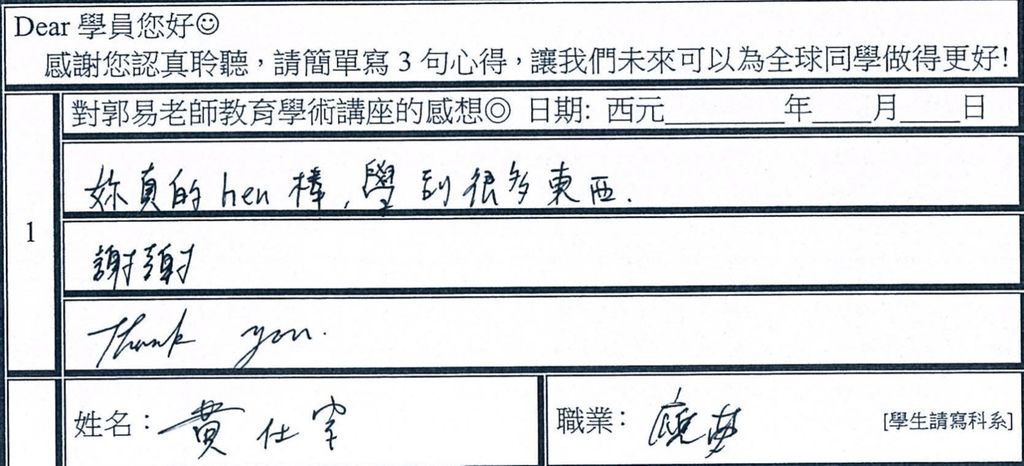 Dear 學員您好☺
感謝您認真聆聽，請簡單寫 3 句心得，讓我們未來可以為全球同學做得更好!
1
對郭易老師教育學術講座的感想◎ 日期: 西元________年____月____日
妳真的 hen 棒，學到很多東西.
謝謝
Thank you.
姓名： 黃仕
職業： [學生請寫科系]